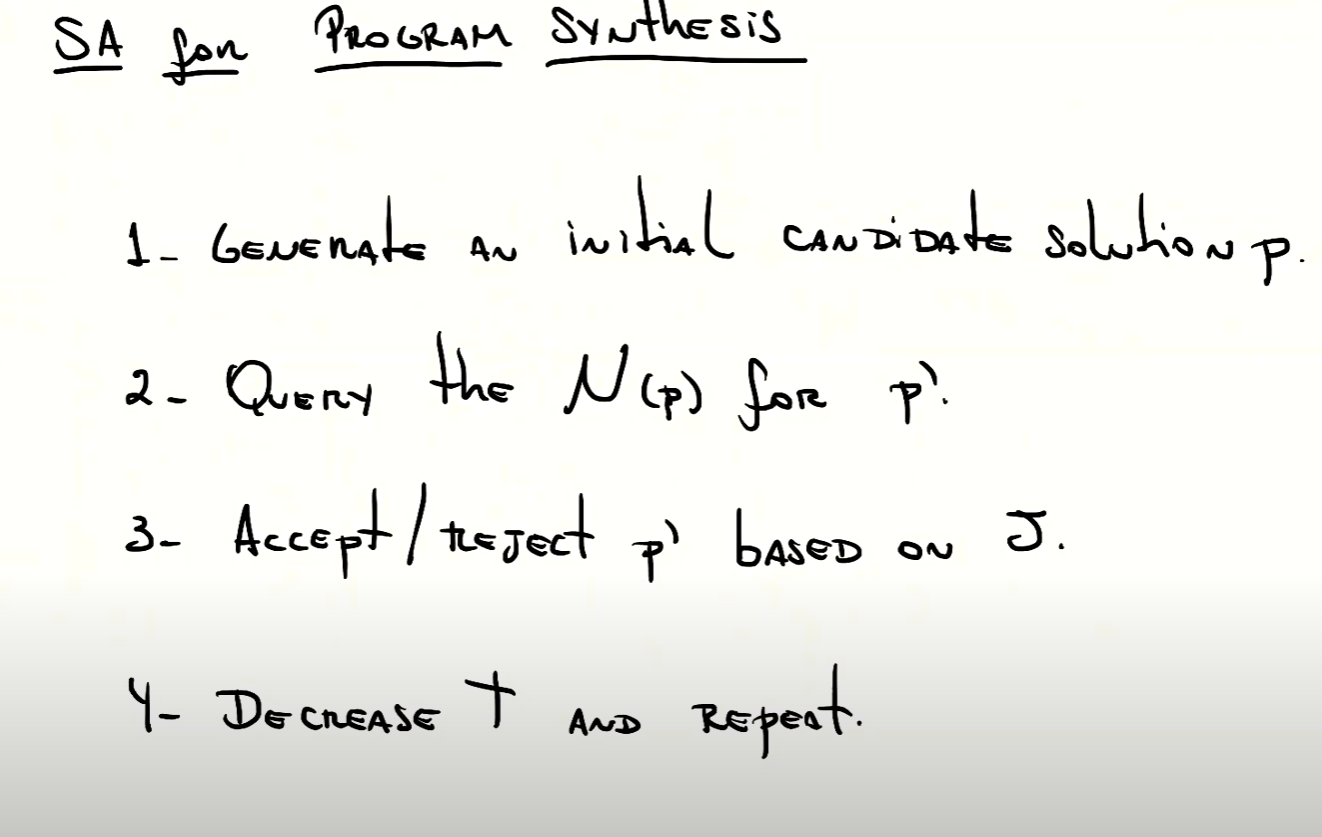 SA for Program Synthesis
1- Generate an initial candidate solution p.
2- Query the N(p) for p'.
3- Accept/reject p' based on J.
4- Decrease T and repeat.